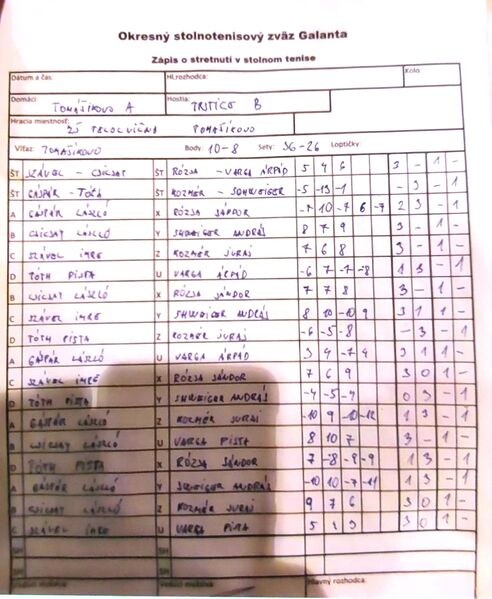 Okresný stolnotenisový zväz Galanta
Zápis o stretnutí v stolnom tenise
Dátum a čas: Hl.rozhodca: Kolo
Domáci: TOMAŠÍKOVO A Hostia: TRSTICE B
Hracia miestnosť: ZŠ TELOCVIČŇA TOMAŠÍKOVO
Víťaz: TOMAŠÍKOVO Body: 10-8 Sety: 36-26 Loptičky:
ŠT SZÁVEL - CSICSAT ŠT RÓZSA - VARGA ÁRPÁD 5 4 6 3 - 1 -
ŠT GÁSPÁR - TÓTH ŠT KOZMÉR - SCHWEIGER -5 -13 -1 - 3 - 1
A GÁSPÁR LÁSZLÓ X RÓZSA SÁNDOR -7 10 -7 6 -7 2 3 - 1
B CSICSAT LÁSZLÓ Y ANDRÁS 8 7 9 3 - 1 -
C SZÁVEL IMRE Z KOZMÉR JURAJ 7 6 8 3 - 1 -
D TÓTH PISTA U VARGA ÁRPÁD -6 7 -7 -8 1 3 - 1
B CSICSAT LÁSZLÓ X RÓZSA SÁNDOR 7 7 8 3 - 1 -
C SZÁVEL IMRE Y ANDRÁS 8 10 -10 9 3 1 1 -
D TÓTH PISTA Z KOZMÉR JURAJ -6 -5 -8 - 3 - 1
A GÁSPÁR LÁSZLÓ U VARGA ÁRPÁD 3 4 -7 4 3 1 1 -
C SZÁVEL IMRE X RÓZSA SÁNDOR 7 6 9 3 0 1 -
D TÓTH PISTA Y ANDRÁS -4 -5 -4 0 3 - 1
A GÁSPÁR LÁSZLÓ Z KOZMÉR JURAJ -10 9 -10 -12 1 3 - 1
B CSICSAT LÁSZLÓ U VARGA PISTA 8 10 7 3 - 1 -
D TÓTH PISTA X RÓZSA SÁNDOR 7 -8 -8 -9 1 3 - 1
A GÁSPÁR LÁSZLÓ Y ANDRÁS -10 10 -7 -11 1 3 - 1
B CSICSAT LÁSZLÓ Z KOZMÉR JURAJ 9 7 6 3 0 1 -
C SZÁVEL IMRE U VARGA PISTA 5 1 3 3 0 1 -
SH SH
SH SH
Vedúci družstva Vedúci družstva Hlavný rozhodca: